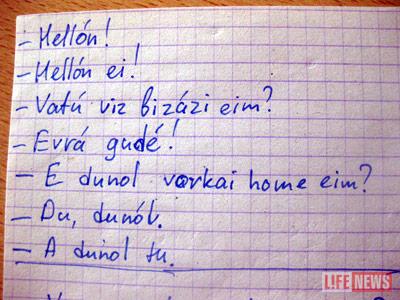 – Hellón!
– Hellón ei!
– Vatú viz bizázi eim?
– Evrá gudé!
– E dunol vorkai home eim?
– Du, dunól.
– A dunol tu.
LIFE NEWS